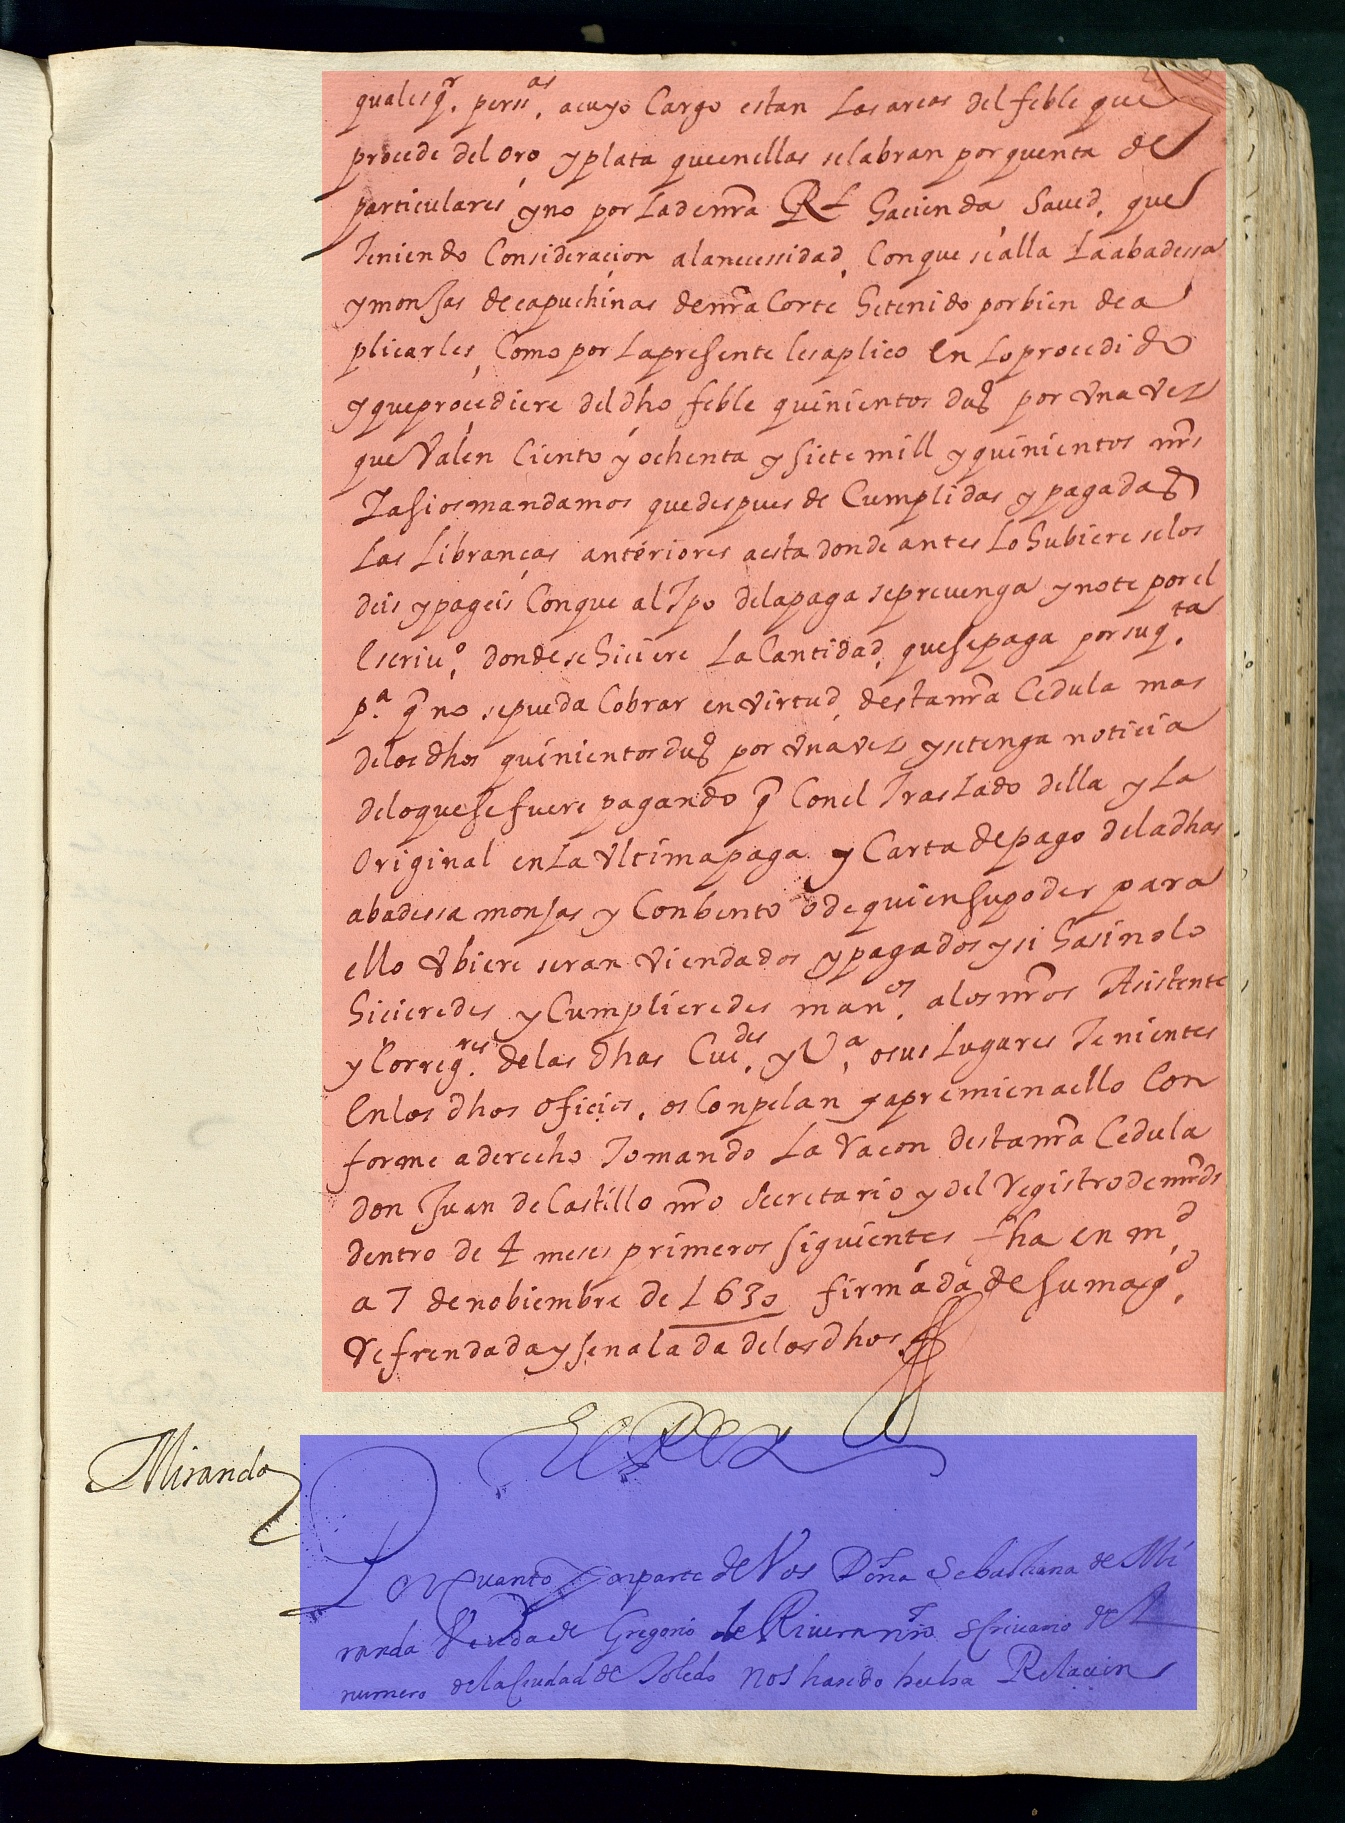 qualesqr. perss.as acuyo Cargo estan Las arcas del feble que
procede del oro, y plata queenellas selabran por quenta de
particulares yno por Lade nra Rl hacienda Saved, que
Teniendo Consideraçion alanecessidad, Conque se alla La abadessa
y monjas de capuchinas de nra Corte he tenido por bien de a
plicarles, Como por Lapresente les aplico en Lo procedido
y que proçediere del dho feble quinientos dus por vna vez
que Valen Ciento y ochenta y siete mill y quinientos mrs
Iasi os mandamos que despues de Cumplidas y pagadas
Las Libranças anteriores aesta donde antes Lo hubiere selos
deis y pageis Conque al Tpo delapaga se prevenga y note por el
escriuo. donde se hiciere La Cantidad, que se paga por su q.ta
p.a q no se pueda Cobrar en virtud, desta nra Cedula mas
delos dhos quinientos dus por vna vez y setenga noticia
delo que se fuere pagando q Con el Traslado della y La
Original en La vltima paga y Carta de pago dela dhas
abadessa monjas y Conbento o de quien su poder para
ello vbiere seran Veiendados y pagados y si hasi no lo
hicieredes y Cumplieredes man.os alos nros Asistente
y Corregres. delas dhas Cuedes. y Va. o sus Lugares Tenientes
En los dhos oficios, os Conpelan y apremien aello Con
forme a derecho Tomando La Raçon desta nra Cedula
don Juan de Castillo nro Secretario y del Registro de mrds
dentro de 4 meses primeros siguientes fha en m.d
a 7 de nobiembre de 1630 firmada de su mag.d
Refrendada y señalada delos dhos
El Rey
Miranda
Por Quanto Por parte de Vos Doña Sebastiana de Mi
randa Viuda de Gregorio de Rivera nro escrivano del
numero de la Ciudad de Toledo nos ha sido hecha Relaçion